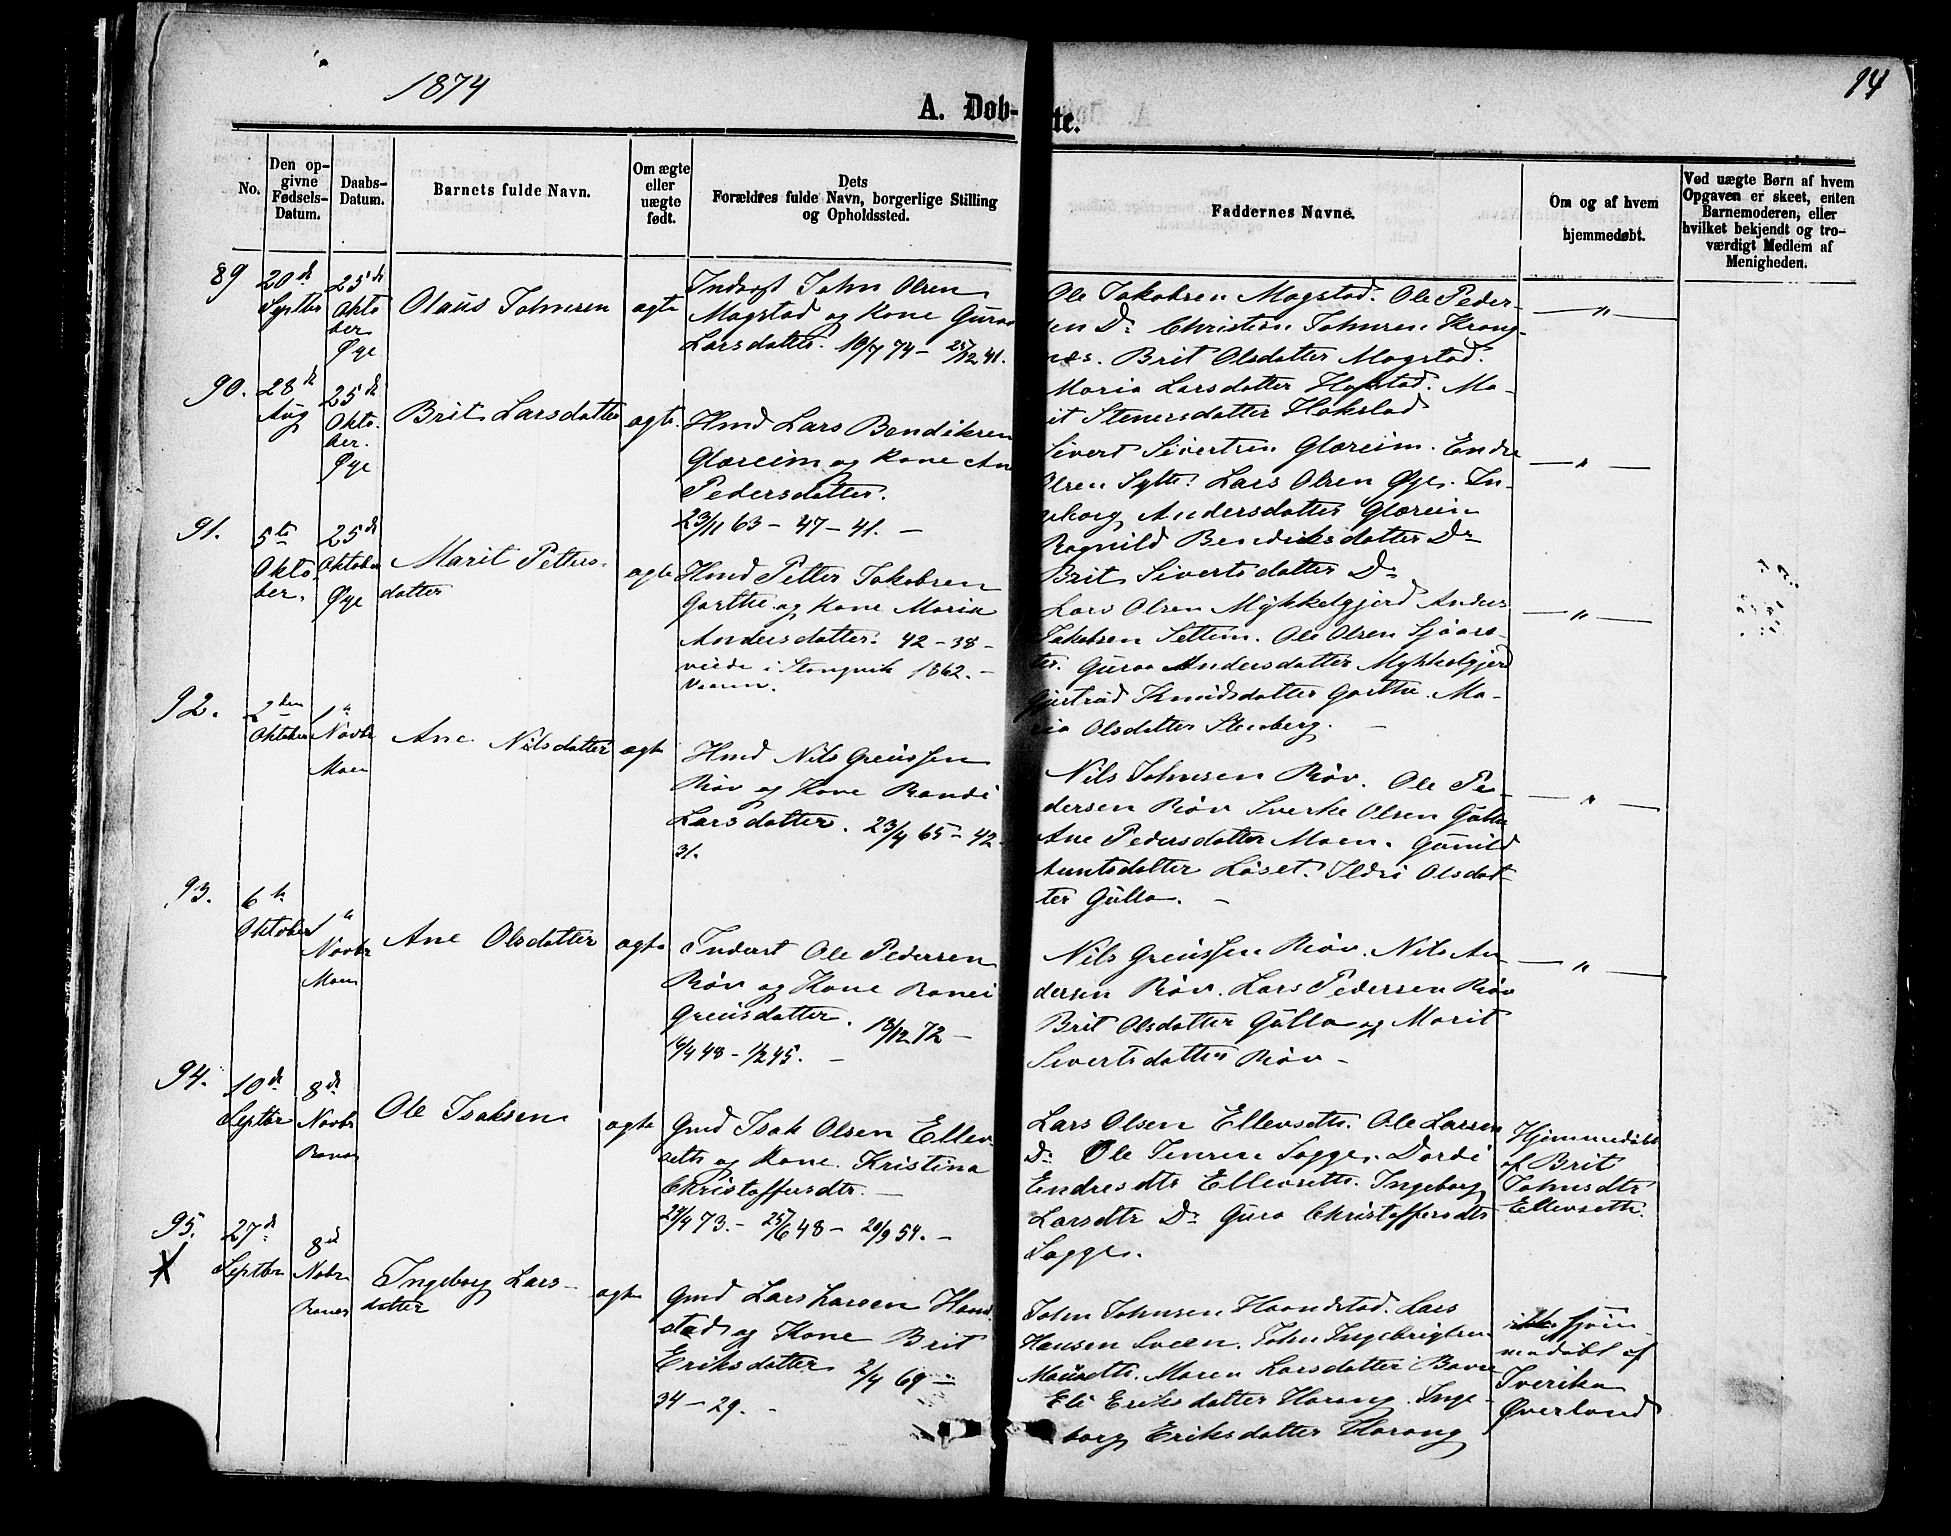 1874
14
A. Døb-
te.
No.
Den op-
givne
Fødsels-
Datum.
Daabs-
Datum.
Barnets fulde Navn.
Om ægte
eller
uægte
født.
Dets
Forældres fulde Navn, borgerlige Stilling
og Opholdssted.
Faddernes Navne.
Om og af hvem
hjemmedøbt.
Ved uægte Børn af hvem
Opgaven er skeet, enten
Barnemoderen, eller
hvilket bekjendt og tro-
værdigt Medlem af
Menigheden.
89
20de
Septbr
25de
Okto
ber
Øye
Olaus Johnsen
ægte
John Olsen
Magstad og Kone Guroe
Larsdatter. 10/7 74 - 25/12 41.
Ole Jakobsen Magstad. Ole Peder-
sen Do Christen Johnsen Krang-
næs. Brit Olsdatter Magstad.
Maria Larsdatter Hagstad. Ma-
rit Stenersdatter Hakstad
— " —
90.
28de
Aug
25de
Okto-
ber.
Øye
Brit Larsdatter
ægte.
Hmd Lars Bendiksen
Glæreim og Kone An
Pedersdatter.
23/11 63 - 47 - 41. -
Sivert Sivertsen Glæreim. Endre
Olsen Sylte. Lars Olsen Øye. In-
geborg Andersdatter Glæreim
Ragnild Bendiksdatter Do
Brit Sivertsdatter Do
— " —
91.
5te
Okto-
ber.
25de
Oktober
Øye
Marit Petters-
datter
ægte
Hmd Petter Jakobsen
Garthe og Kone Maria
Andersdatter. 42 - 38 -
viede i Stangvik 1862. -
Vaaren.
Lars Olsen Mykkelgjerd Anders
Jakobsen Settem. Ole Olsen Sjøaas-
ter. Guroe Andersdatter Mykkelgjerd
Gjertrud Knudsdatter Garthe. Ma-
ria Olsdatter Stenberg. -
— " —
92.
2den
Oktober
1ste
Novbr
Moen
Ane Nilsdatter
ægte
Hmd Nils Greussen
Røv og Kone Randi
Larsdatter. 23/4 65 - 42
31.
Nils Johnsen Røv. Ole Pe-
dersen Røv Sverke Olsen Gulla
Ane Pedersdatter Moen. Gunild
Auntsdatter Løset. Ildri Olsdat-
ter Gulla. -
— " —
93.
6te
Oktober
1ste
Novbr
Moen
Ane Olsdatter
ægte
Inderst Ole Pedersen
Røv og Kone Randi
Greusdatter. 18/12 72 -
16/4 48 - 1/2 45. -
Nils Greussen Røv. Nils An-
dersen Røv. Lars Pedersen Røv
Brit Olsdatter Gulla og Marit
Sivertsdatter Røv -
— " —
94.
10de
Septbr
8de
Novbr
Ranes
Ole Isaksen
ægte
Gmd Isak Olsen Ellev-
seth og Kone Kristina
Christoffersdtr. -
29/4 73. - 25/6 48 - 20/9 54. -
Lars Olsen Ellevseth. Ole Larsen
Do Ole Jensen Sogge. Dordi
Endresdtr Ellevseth. Ingeborg
Larsdtr Do Guro Christoffersdtr
Sogge.
Hjemmedøbt
af Brit
Johnsdtr
Ellevseth.
95.
X
27de
Septbr
8de
Novbr
Ranes
Ingeborg Lars-
datter
ægte
Gmd Lars Larsen Hand
stad og Kone Brit
Eriksdatter 2/4 69 -
34 - 29. -
John Johnsen Haandstad. Lars
Hansen Sveen. John Ingebrigtsen
Mauseth. Maren Larsdatter Bævre
Eli Eriksdatter Harang. Inge-
borg Eriksdatter Harang
hjem-
medøbt af
Sverike
Øverland